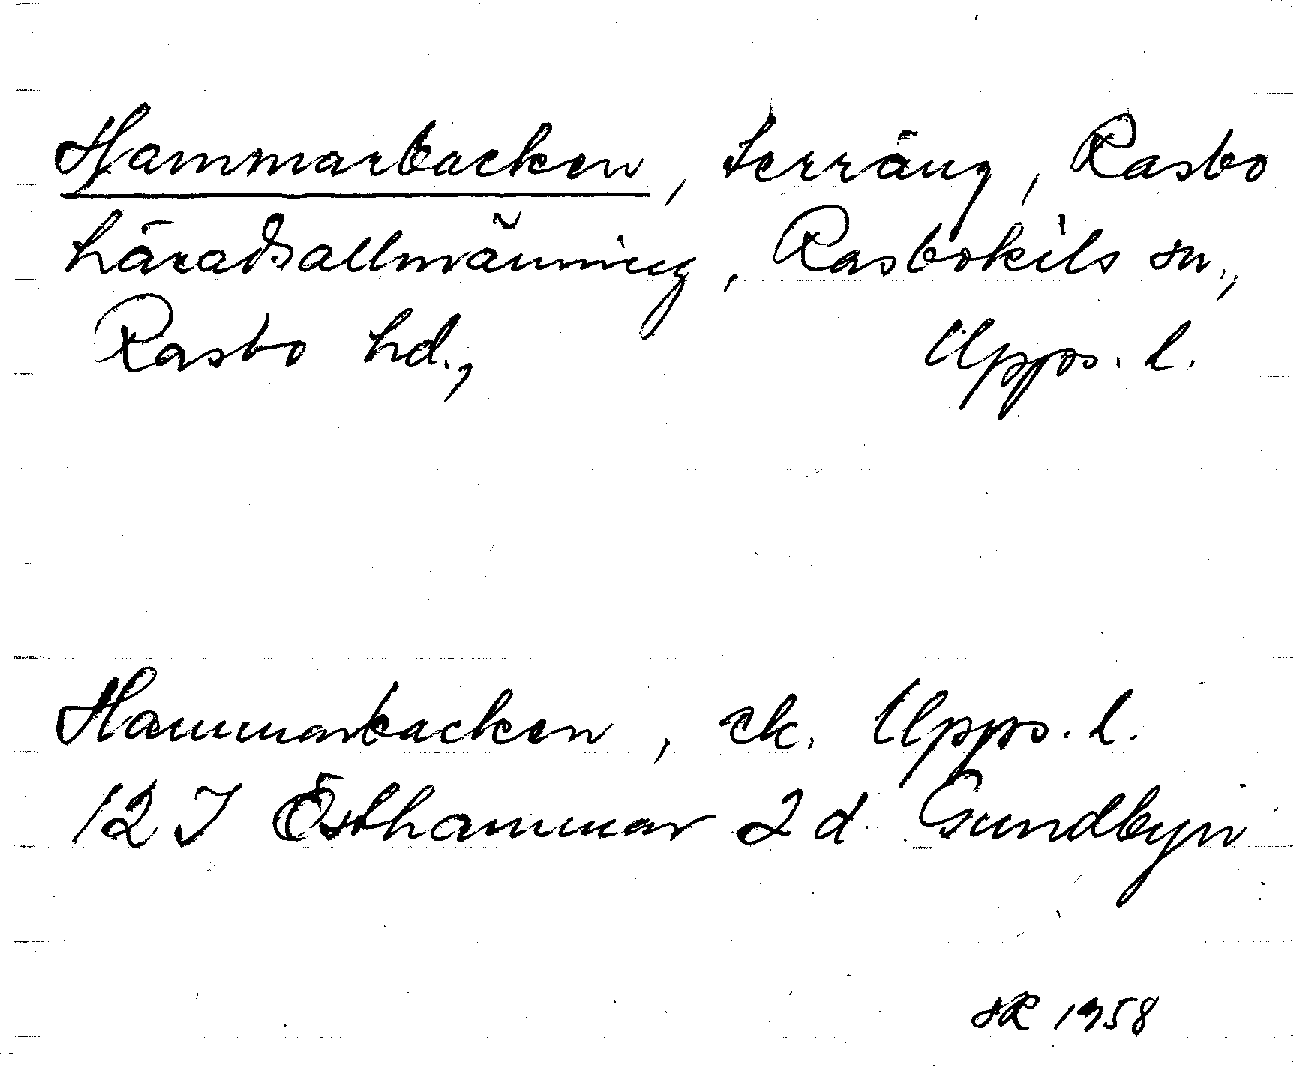 Hammarbacken, terräng, Rasbo
häradsallmänning, Rasbokils sn.,
Rasbo hd., Upps. l.
Hammarbacken, ek. Upps. l.
12 I Östhammar 2 d Gundbyn
HR 1958